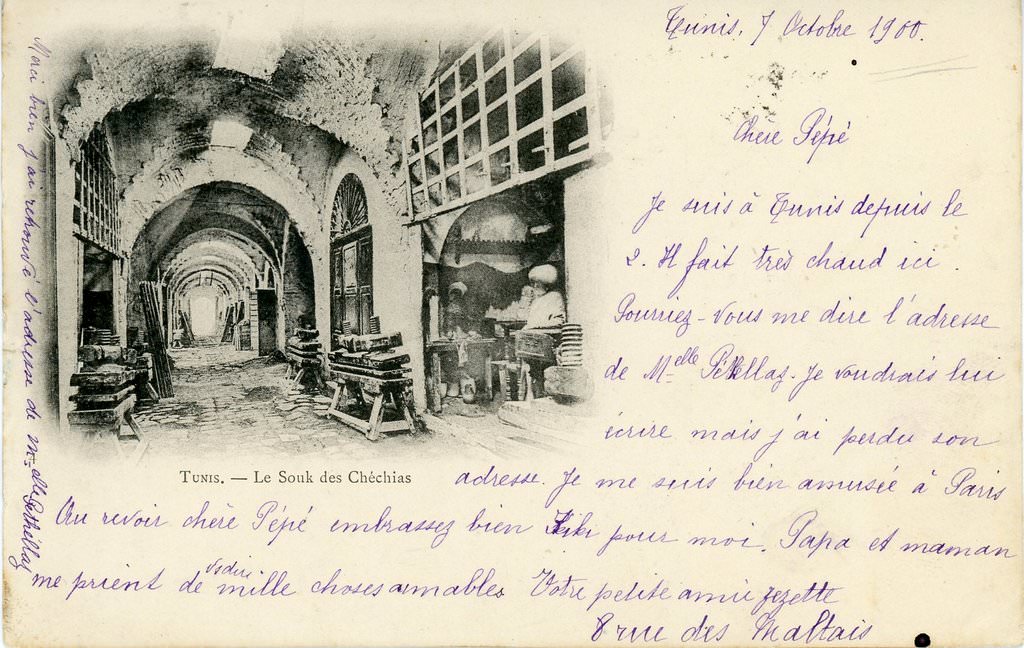 Tunis, 7 Octobre 1900.
Chère Pépé
Je suis à Tunis depuis le
2. Il fait très chaud ici.
Pourriez-vous me dire l'adresse
de Melle Je voudrais lui
écrire mais j'ai perdu son
adresse. Je me suis bien amusée à Paris
Au revoir chère Pépé embrassez bien Kiki pour moi. Papa et maman
me prient de vs dire mille choses aimables Votre petite amie Zezette
8 rue des Maltais
TUNIS. — Le Souk des Chéchias
bien j'ai retrouvé l'adresse de Melle